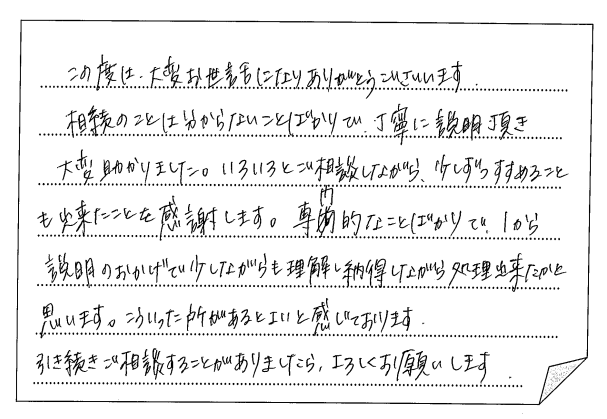 この度は、大変お世話になりありがとうございます。
相続のことは分からないことばかりで、丁寧に説明頂き
大変助かりました。いろいろとご相談しながら、少しずつすすめること
も出来たことを感謝します。専門的なことばかりで、1から
説明のおかげで少しながらも理解し納得しながら処理出来たかと
思います。こういった所があるとよいと感じております。
引き続きご相談することがありましたら、よろしくお願いします。